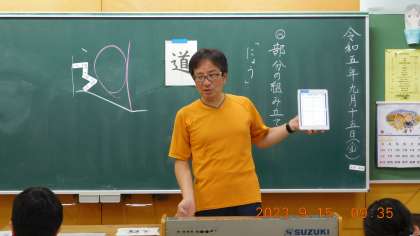 令和五年九月十五日(金)
め 部分の組み立て
「にょう」
道
SUZUKI
2023.9.15 09:35